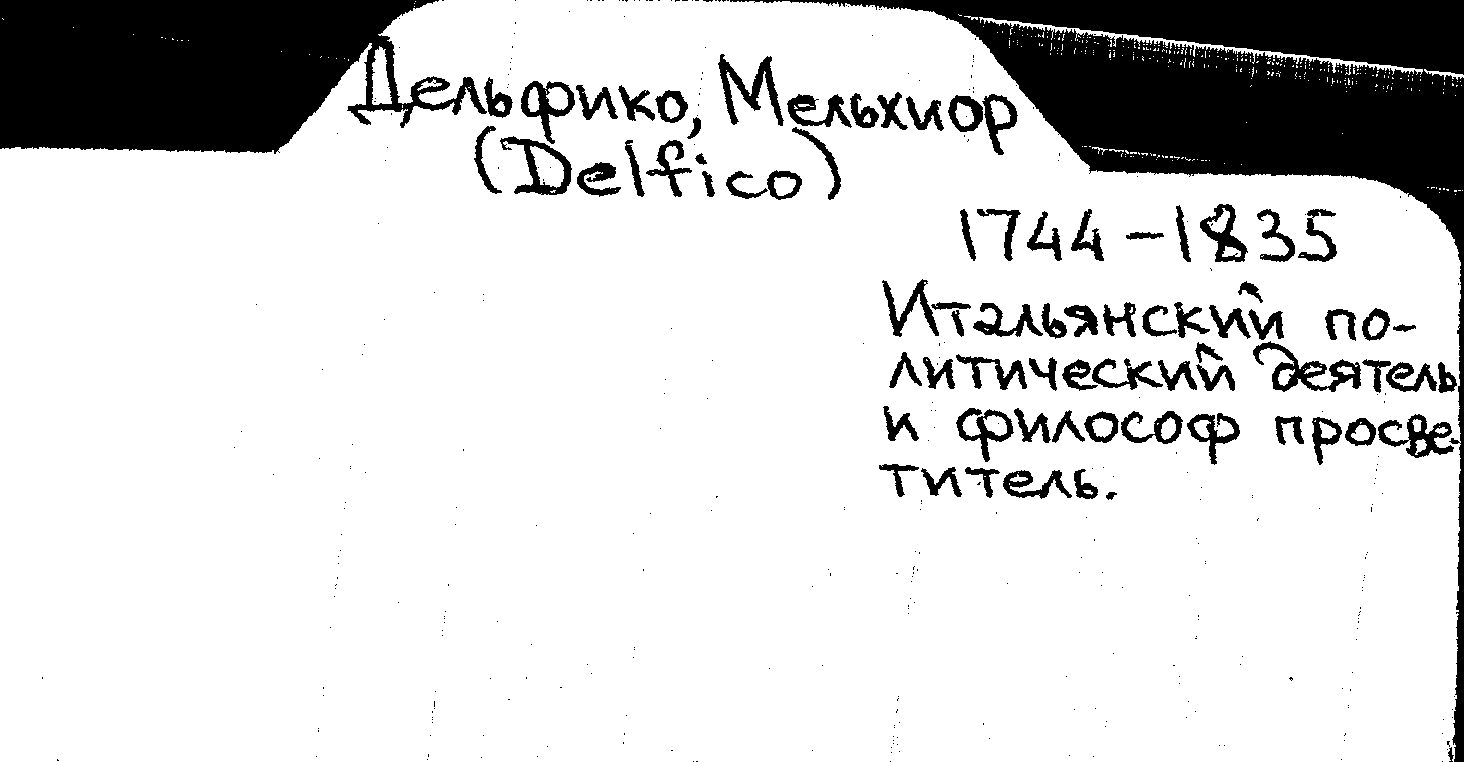 Дельфико, Мельхиор
(Delfico)
1744-1835
Итальянский по-
литический деятель
и философ просве-
титель.